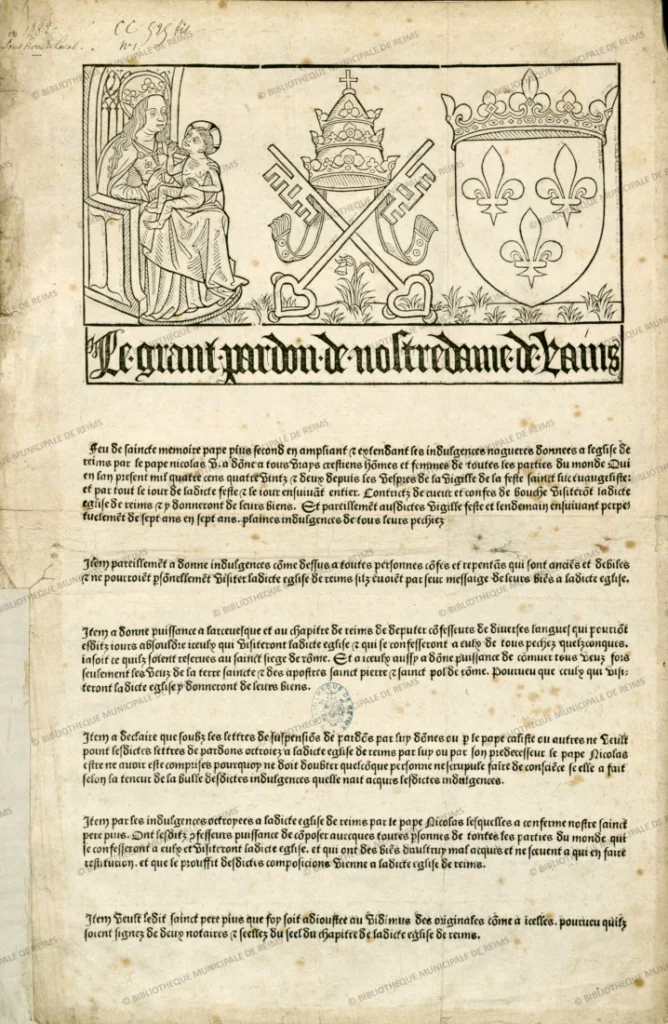 CC 525 bis
N° 1
Le·grant·pardon·de·nostredame·de·Rains
Feu de saincte memoire pape pius second en ampliant ⁊ extendant les indulgences nagueres donnees a leglise de
reims par le pape nicolas V. a dõne a tous vrays crestiens hõmes et femmes de toutes les parties du monde Qui
en lan present mil quatre cens quatre vintz ⁊ deux depuis les vespres de la vigille de la feste sainct luc euangeliste:
et par tout le iour de ladicte feste ⁊ le iour ensuiuãt entier. Contrictz de cueur et confes de bouche visiterõt ladicte
eglise de reims ⁊ y donneront de leurs biens. Et pareillement ausdictes vigille feste et lendemain ensuiuant perpe
tuelemẽt de sept ans en sept ans, plaines indulgences de tous leurs pechiez
Item pareillemẽt a donne indulgences cõme dessus a toutes personnes cõfes et repentãs qui sont anciẽs et debiles
⁊ ne pourroiẽt psõnellemẽt visiter ladicte eglise de reims silz ẽuoiẽt par seur messaige de leurs biẽs a ladicte eglise.
Item a donne puissance a larceuesque et au chapitre de reims de deputer cõfesseurs de diuerses langues qui pourrõt
esditz iours absouldre iceulx qui visiteront ladicte eglise ⁊ qui se confesseront a eulx de tous pechez quelzconques,
iasoit ce quilz soiẽt reserues au sainct siege de rõme. Et a iceulx aussy a dõne puissance de cõmuer tous veuz fors
seulement les veuz de la terre saincte ⁊ des apostres sainct pierre ⁊ sainct pol de rõme. Pourueu que ceulx qui visi-
teront ladicte eglise y donneront de leurs biens.
Item a declaire que soubz les lettres de suspensiõs de pardõs par luy dõnes ou p le pape calixte ou autres ne veult
point lesdictes lettres de pardons octroiez a ladicte eglise de reims par luy ou par son predecesseur le pape Nicolas
estre ne auoir este comprises pourquoy ne doit doubter quelcõque personne ne scrupule faire de consciẽce se elle a fait
selon la teneur de la bulle desdictes indulgences quelle nait acquis lesdictes indulgences.
Item par les indulgences octroyees a ladicte eglise de reims par le pape Nicolas lesquelles a conferme nostre sainct
pere pius. Ont lesditz ꝯfesseurs puissance de cõposer auecques toutes psonnes de toutes les parties du monde qui
se confesseront a eulx et visiteront ladicte eglise, et qui ont des biẽs daultruy mal acquis et ne sceuent a qui en faire
restitucion, et que le prouffit desdictes composicions vienne a ladicte eglise de reims.
Item veult ledit sainct pere pius que foy soit adioustee au vidimus des originales cõme a icelles, pourueu quilz
soient signez de deux notaires ⁊ seellez du seel du chapitre de ladicte eglise de reims.
© BIBLIOTHEQUE MUNICIPALE DE REIMS